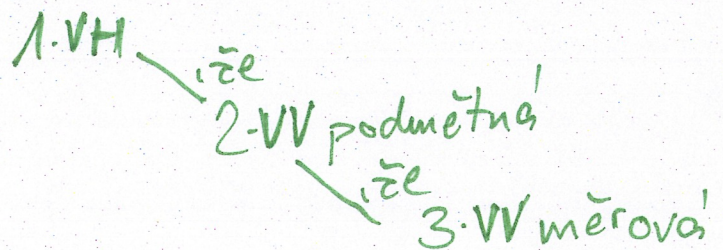 1. VH
, že
2. VV podmětná
, že
3. VV měrová